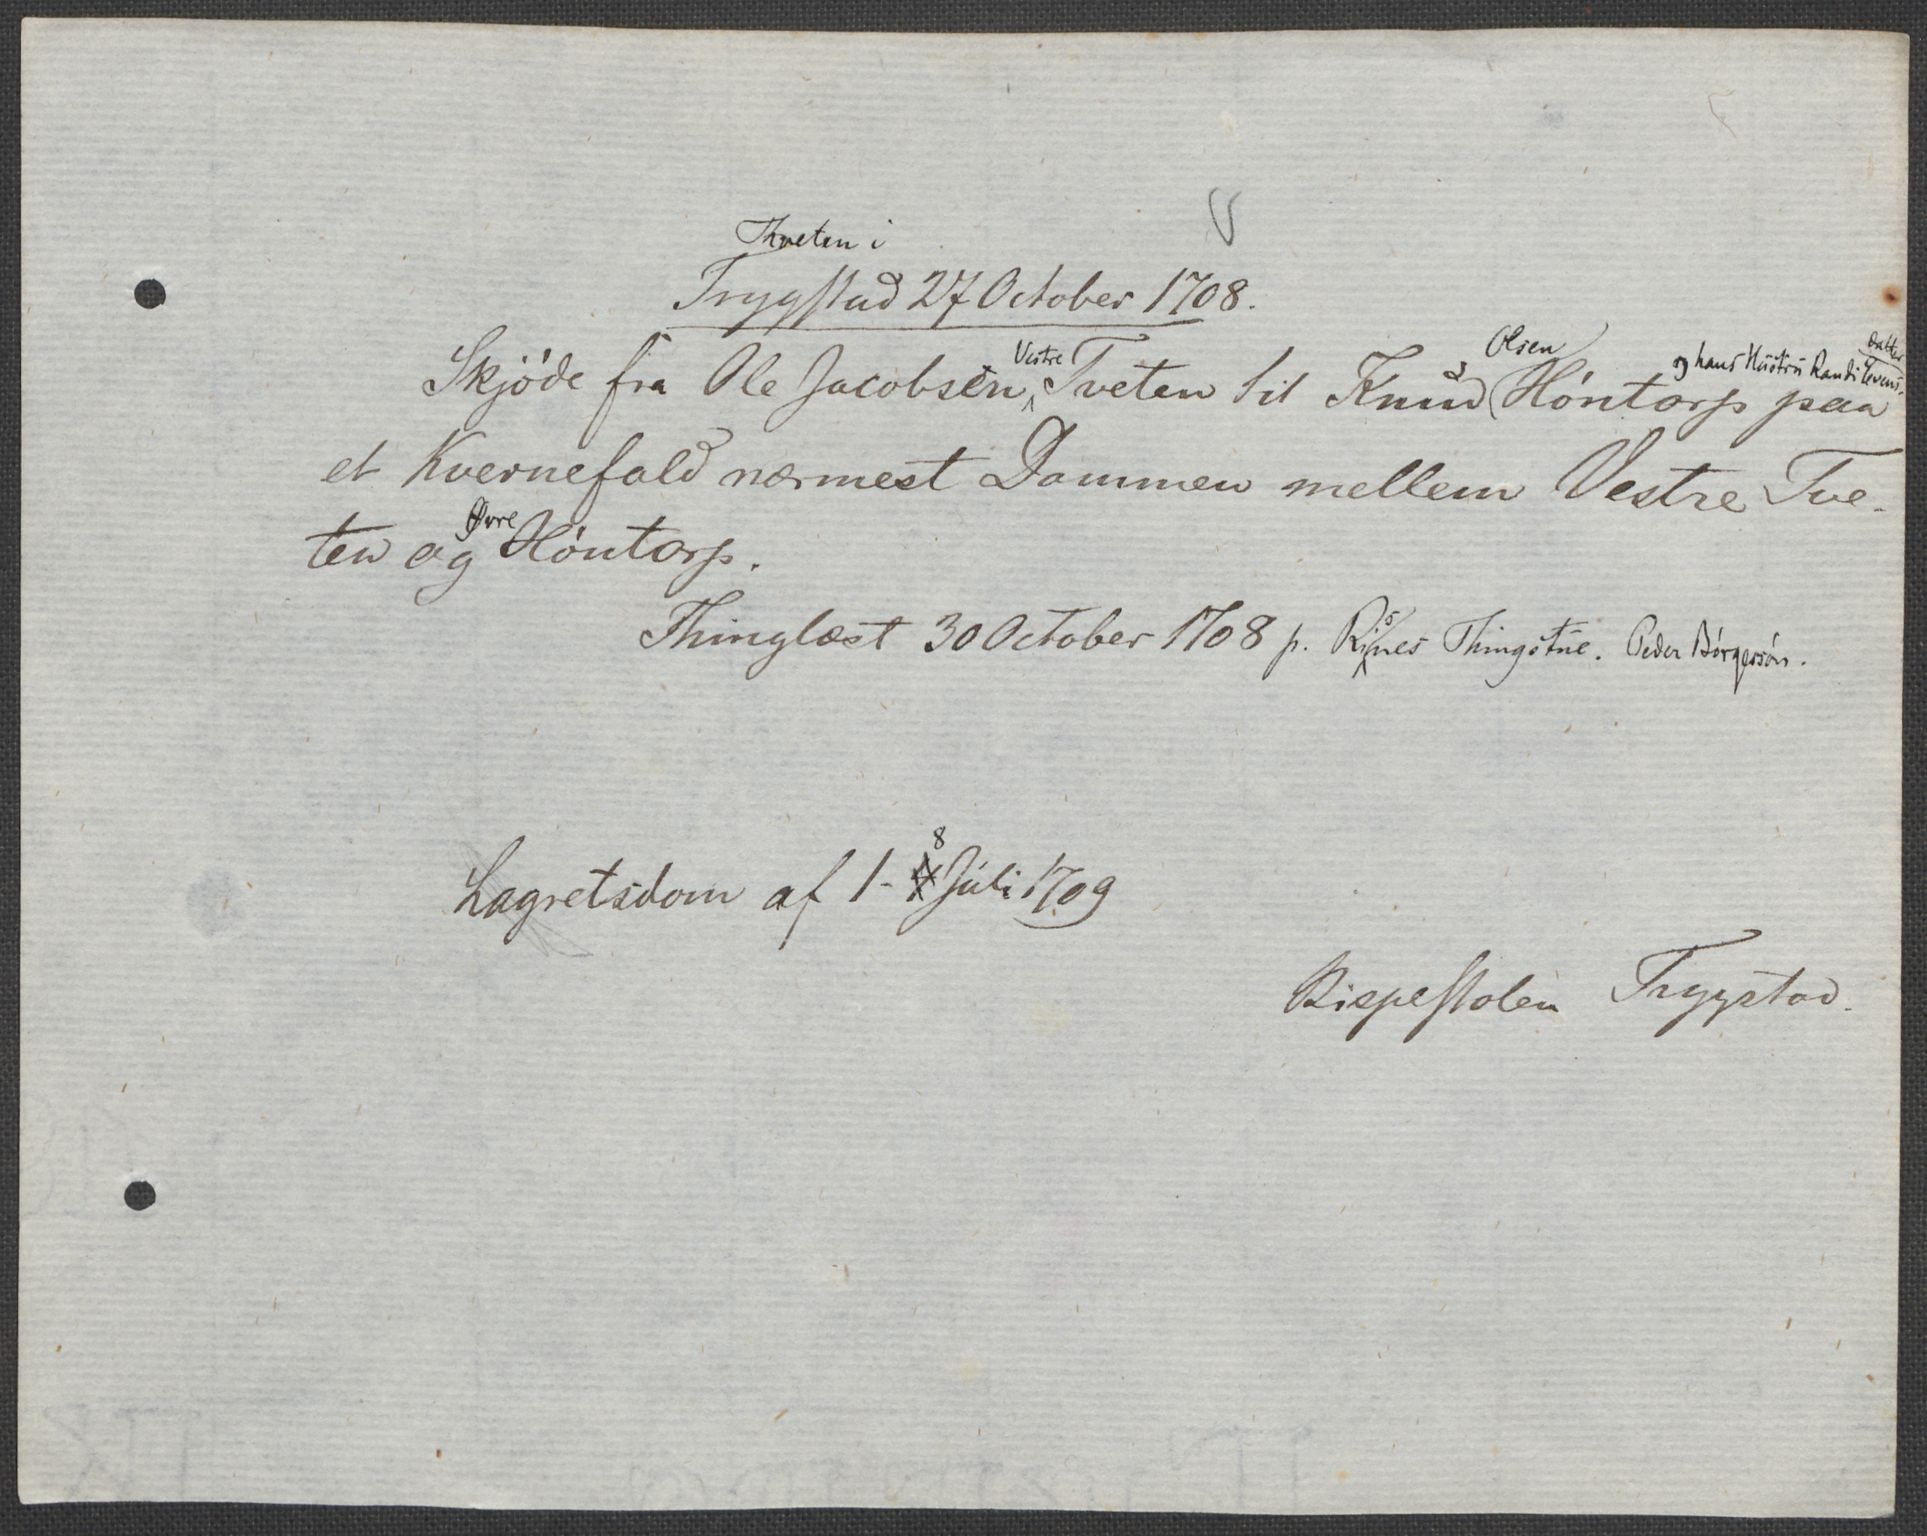 Thveten i
Trygstad 27 October 1708.
Skjöde fra Ole Jacobsen Vestre Tveten til Knud Olsen Höntorp og hans Hústrú Randi Tevens Datter paa
et Kvernefald nærmest Dammen mellem Vestre Tve-
ten og Øvre Höntorp.
Thinglæst 30 October 1708 p. Risnes Thingstúe. Peder Börgersön.
Lagretsdom af 1-8 Júli 1709
Bispestolen Trygstad.